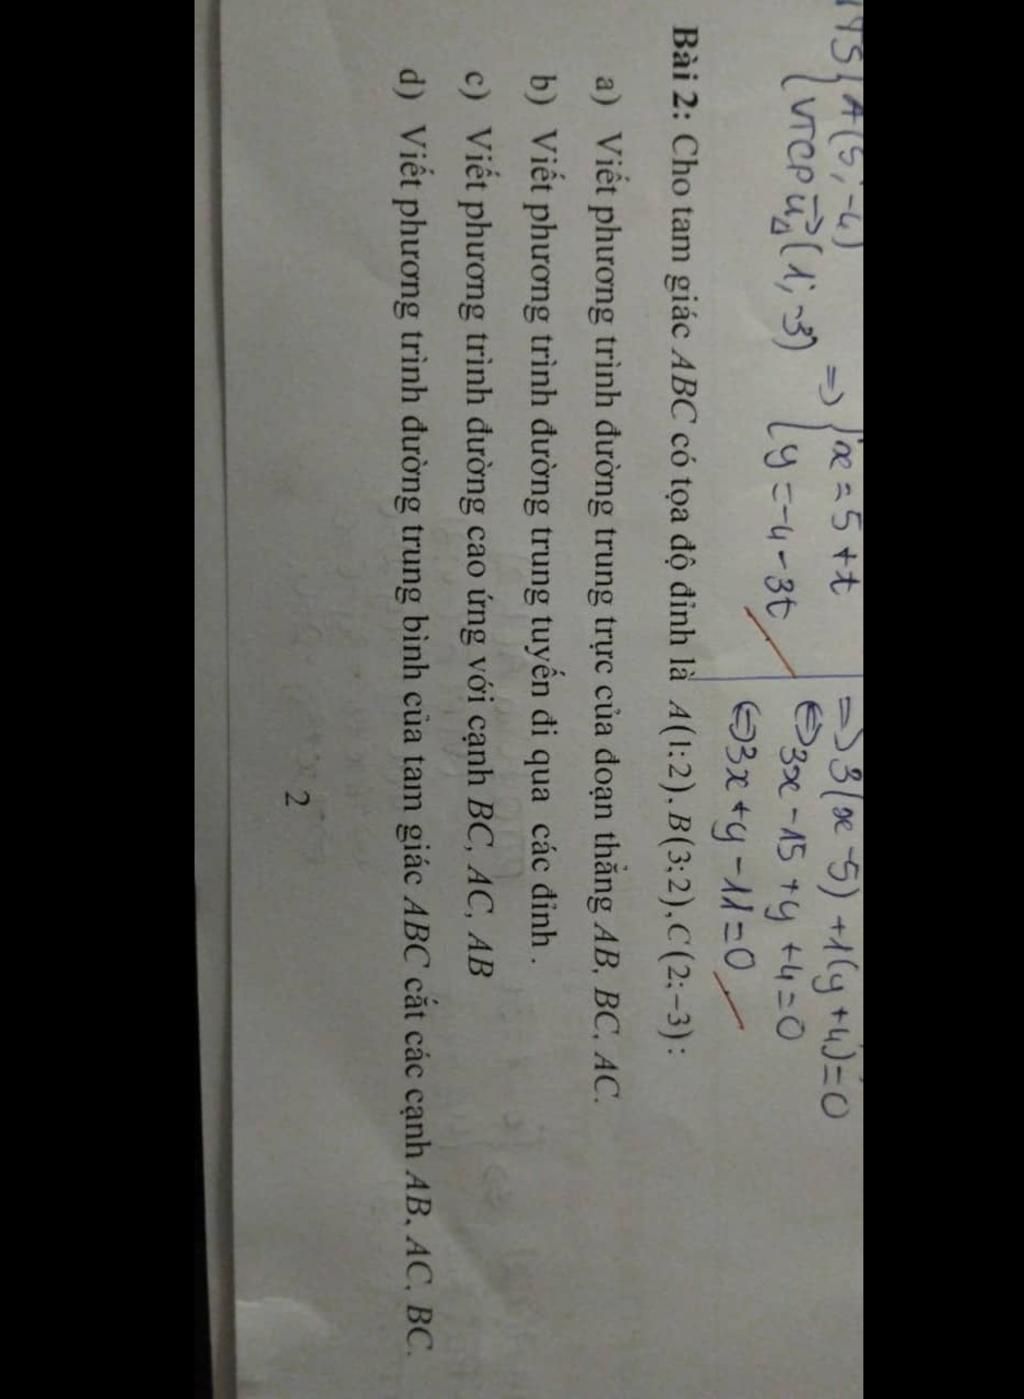 A(5; -4) => { x = 5 + t => 3(x - 5) + 1(y + 4) = 0
{ VTCP u⃗Δ (1; -3) { y = -4 - 3t <=> 3x - 15 + y + 4 = 0
<=> 3x + y - 11 = 0
Bài 2: Cho tam giác ABC có tọa độ đỉnh là A(1;2), B(3;2), C(2;−3) :
a) Viết phương trình đường trung trực của đoạn thẳng AB, BC, AC.
b) Viết phương trình đường trung tuyến đi qua các đỉnh .
c) Viết phương trình đường cao ứng với cạnh BC, AC, AB
d) Viết phương trình đường trung bình của tam giác ABC cắt các cạnh AB, AC, BC.
2